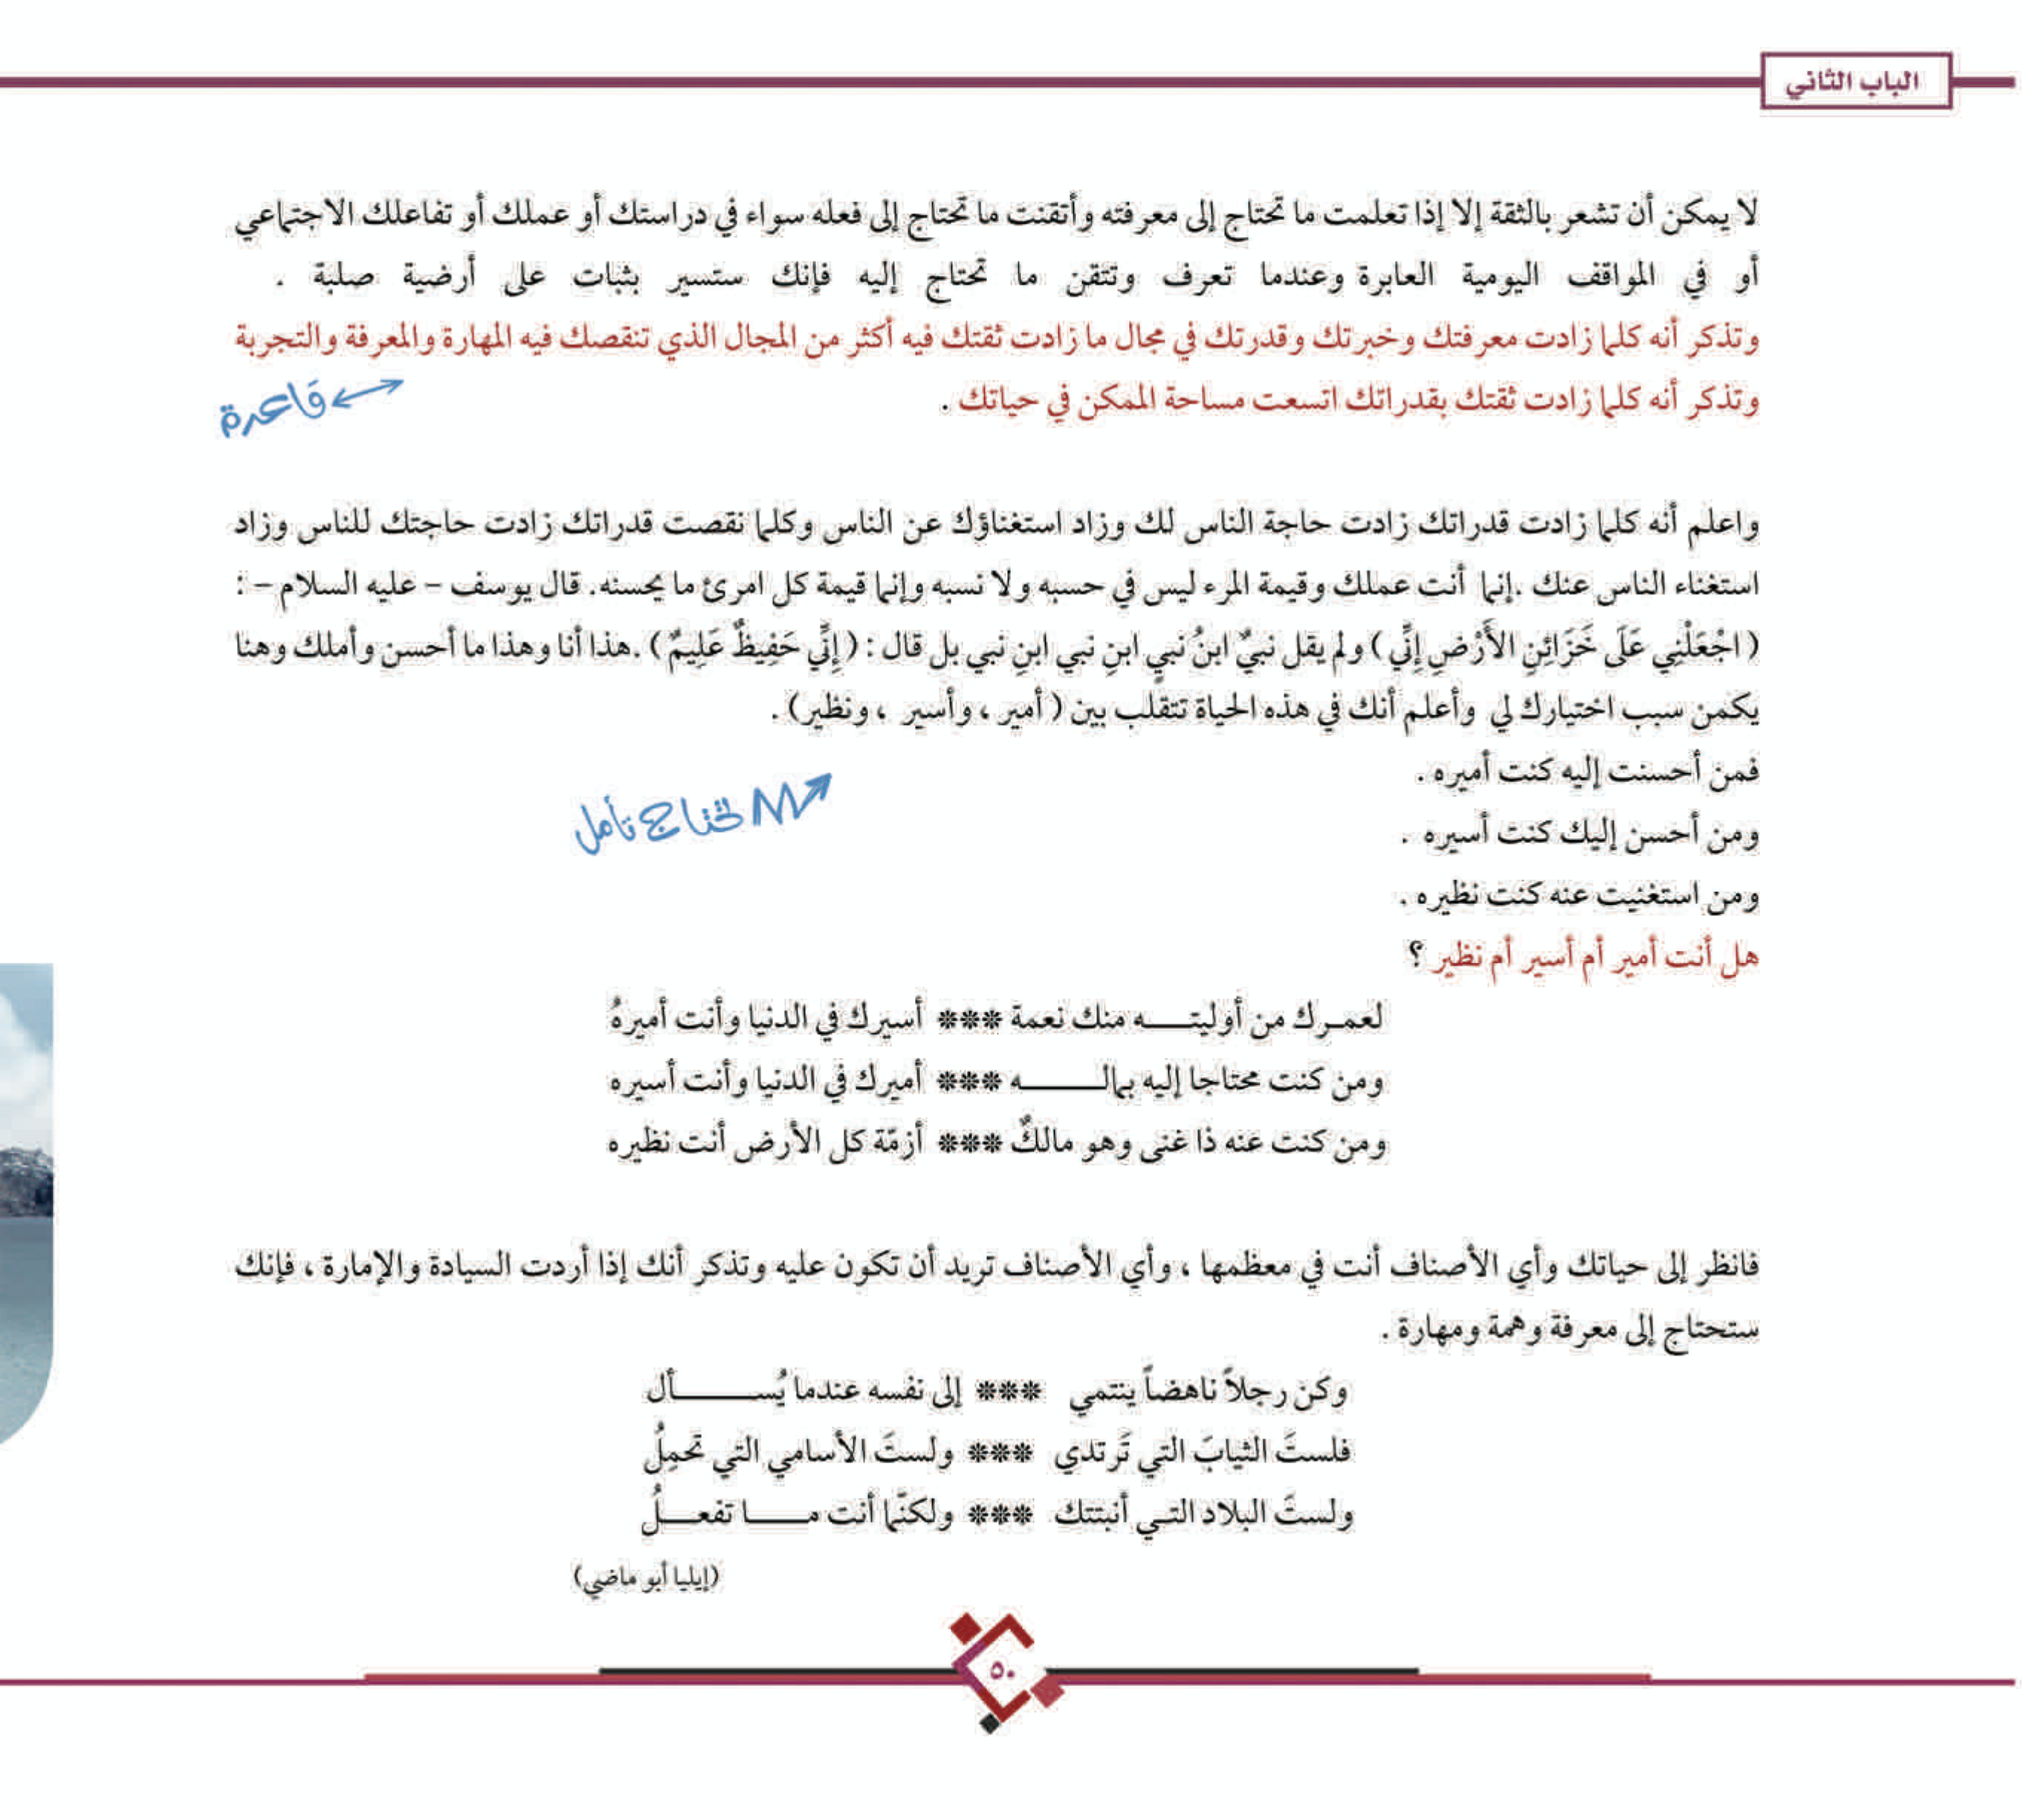 الباب الثاني
لا يمكن أن تشعر بالثقة إلا إذا تعلمت ما تحتاج إلى معرفته وأتقنت ما تحتاج إلى فعله سواء في دراستك أو عملك أو تفاعلك الاجتماعي
أو في المواقف اليومية العابرة وعندما تعرف وتتقن ما تحتاج إليه فإنك ستسير بثبات على أرضية صلبة .
وتذكر أنه كلما زادت معرفتك وخبرتك وقدرتك في مجال ما زادت ثقتك فيه أكثر من المجال الذي تنقصك فيه المهارة والمعرفة والتجربة
وتذكر أنه كلما زادت ثقتك بقدراتك اتسعت مساحة الممكن في حياتك .
قاعدة
واعلم أنه كلما زادت قدراتك زادت حاجة الناس لك وزاد استغناؤك عن الناس وكلما نقصت قدراتك زادت حاجتك للناس وزاد
استغناء الناس عنك .إنما أنت عملك وقيمة المرء ليس في حسبه ولا نسبه وإنما قيمة كل امرئ ما يحسنه. قال يوسف – عليه السلام – :
( اجْعَلْنِي عَلَى خَزَائِنِ الأَرْضِ إِنِّي ) ولم يقل نبيٌ ابنُ نبيٍ ابنِ نبي ابنِ نبي بل قال : ( إِنِّي حَفِيظٌ عَلِيمٌ ) .هذا أنا وهذا ما أحسن وأملك وهنا
يكمن سبب اختيارك لي وأعلم أنك في هذه الحياة تتقلب بين ( أمير ، وأسير ، ونظير) .
فمن أحسنت إليه كنت أميره .
تحتاج تأمل
ومن أحسن إليك كنت أسيره .
ومن استغنيت عنه كنت نظيره .
هل أنت أمير أم أسير أم نظير ؟
لعمـرك من أوليتـــه منك نعمة *** أسيرك في الدنيا وأنت أميرهُ
ومن كنت محتاجا إليه بمالـــــه *** أميرك في الدنيا وأنت أسيره
ومن كنت عنه ذا غنى وهو مالكٌ *** أزمّة كل الأرض أنت نظيره
فانظر إلى حياتك وأي الأصناف أنت في معظمها ، وأي الأصناف تريد أن تكون عليه وتذكر أنك إذا أردت السيادة والإمارة ، فإنك
ستحتاج إلى معرفة وهمة ومهارة .
وكن رجلاً ناهضاً ينتمي *** إلى نفسه عندما يُســـــأل
فلستَ الثيابَ التي تَرتدي *** ولستَ الأسامي التي تحمِلُ
ولستَ البلاد التـي أنبتتك *** ولكنّما أنت مـــــا تفعـــلُ
(إيليا أبو ماضي)
٥٠